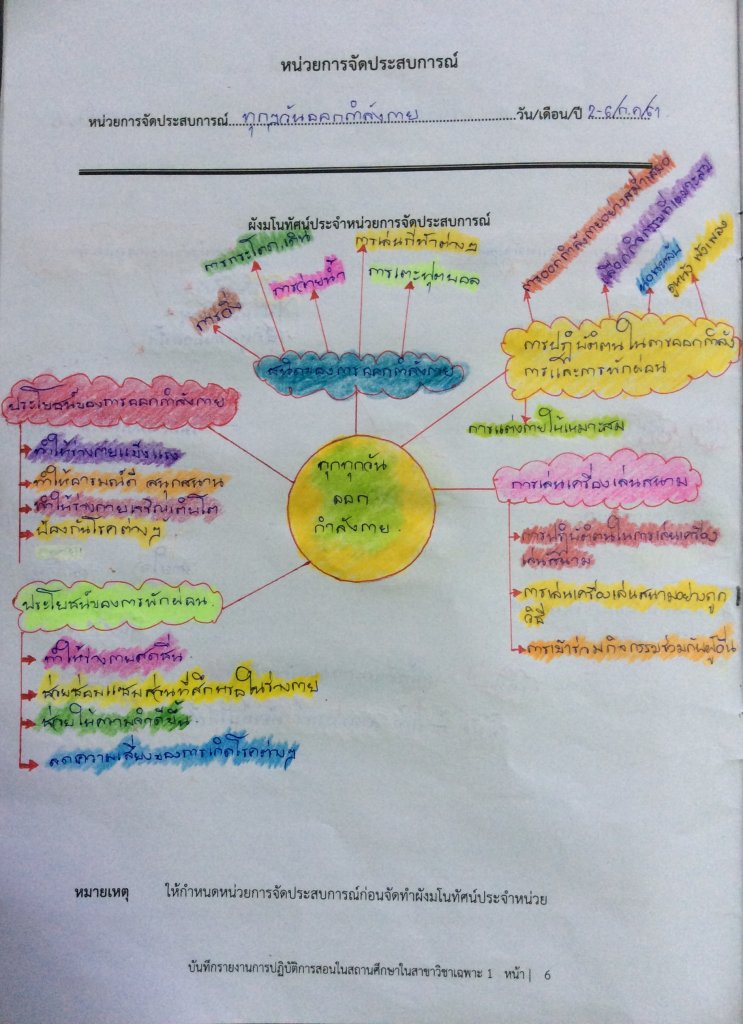 หน่วยการจัดประสบการณ์
หน่วยการจัดประสบการณ์ ทุกๆวันออกกำลังกาย วัน/เดือน/ปี 2-6/ก.ค/61
ผังมโนทัศน์ประจำหน่วยการจัดประสบการณ์
การวิ่ง
การกระโดด,เดิน
การว่ายน้ำ
การเล่นกีฬาต่างๆ
การเตะฟุตบอล
ชนิดของการออกกำลังกาย
การออกกำลังกายอย่างสม่ำเสมอ
เลือกกิจกรรมที่เหมาะสม
นอนหลับ
ดูหนัง ฟังเพลง
การปฏิบัติตนในการออกกำลัง
การและการพักผ่อน
การแต่งกายให้เหมาะสม
ประโยชน์ของการออกกำลังกาย
ทำให้ร่างกายแข็งแรง
ทำให้อารมณ์ดี สนุกสนาน
ทำให้ร่างกายเจริญเติบโต
ป้องกันโรคต่างๆ
ทุกทุกวัน
ออก
กำลังกาย
การเล่นเครื่องเล่นสนาม
การปฏิบัติตนในการเล่นเครื่อง
เล่นสนาม
การเล่นเครื่องเล่นสนามอย่างถูก
วิธี
การเข้าร่วมกิจกรรมร่วมกับผู้อื่น
ประโยชน์ของการพักผ่อน
ทำให้ร่างกายสดชื่น
ช่วยซ่อมแซมส่วนที่สึกหรอในร่างกาย
ช่วยให้ความจำดีขึ้น
ลดความเสี่ยงของการเกิดโรคต่างๆ
หมายเหตุ ให้กำหนดหน่วยการจัดประสบการณ์ก่อนจัดทำผังมโนทัศน์ประจำหน่วย
บันทึกรายงานการปฏิบัติการสอนในสถานศึกษาในสาขาวิชาเฉพาะ 1 หน้า | 6